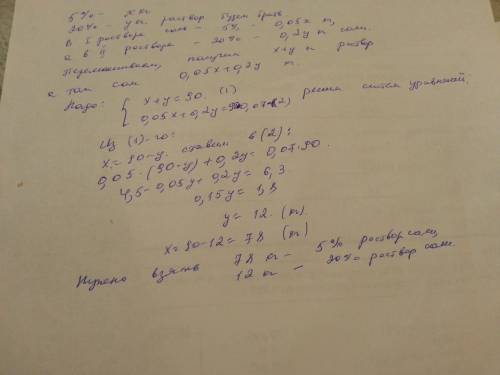 5% – x кг
20% – y кг. раствор будем брать
В I растворе соли – 5% – 0,05x кг,
а в II растворе – 20% – 0,2y кг соли.
Перемешиваем, получим x+y кг раствор
а там соли 0,05x+0,2y кг.
Надо: { x+y=90. (1)
0,05x+0,2y=90·0,07 (2) решим систем уравнений.
Из (1)-го:
x=90-y. ставим в (2):
0,05·(90-y)+0,2y=0,07·90.
4,5-0,05y+0,2y=6,3
0,15y=1,8
y=12. (кг)
x=90-12=78 (кг)
Нужно взять 78 кг – 5% раствор соли,
12 кг – 20% раствор соли.